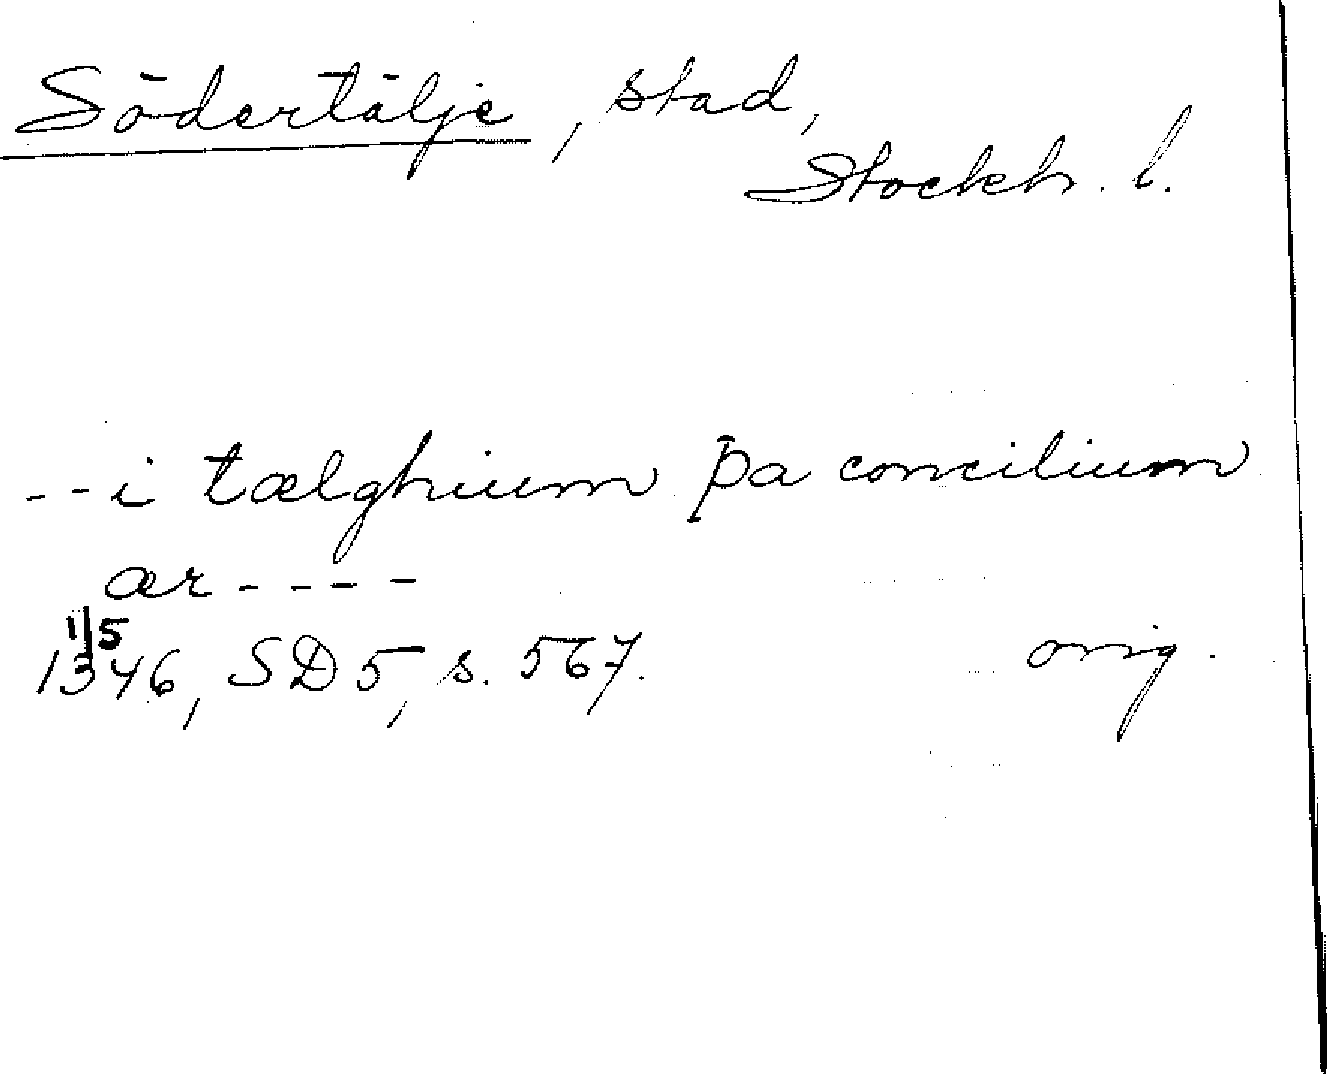 Södertälje, stad,
Stockh. l.
--i tælghium þa concilium
ær ----
1/5
1346, SD 5, s. 567. orig.